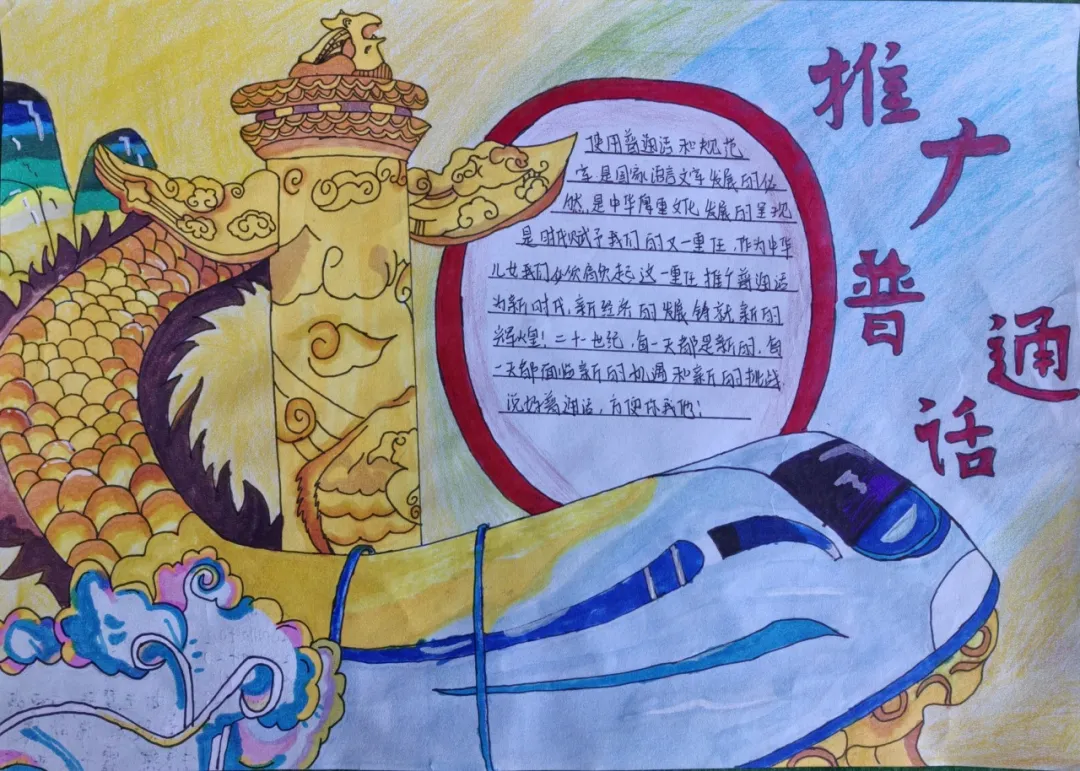 推广普通话
使用普通话和规范
字是国家语言文字发展的依
然,是中华厚重文化发展的呈现
是时代赋予我们的又一重任,作为中华
儿女我们必须肩负起这一重任推广普通话
为新时代,新经济的发展铸就新的
辉煌!二十一世纪,每一天都是新的,每
一天都面临新的机遇和新的挑战
说好普通话,方便你我他!